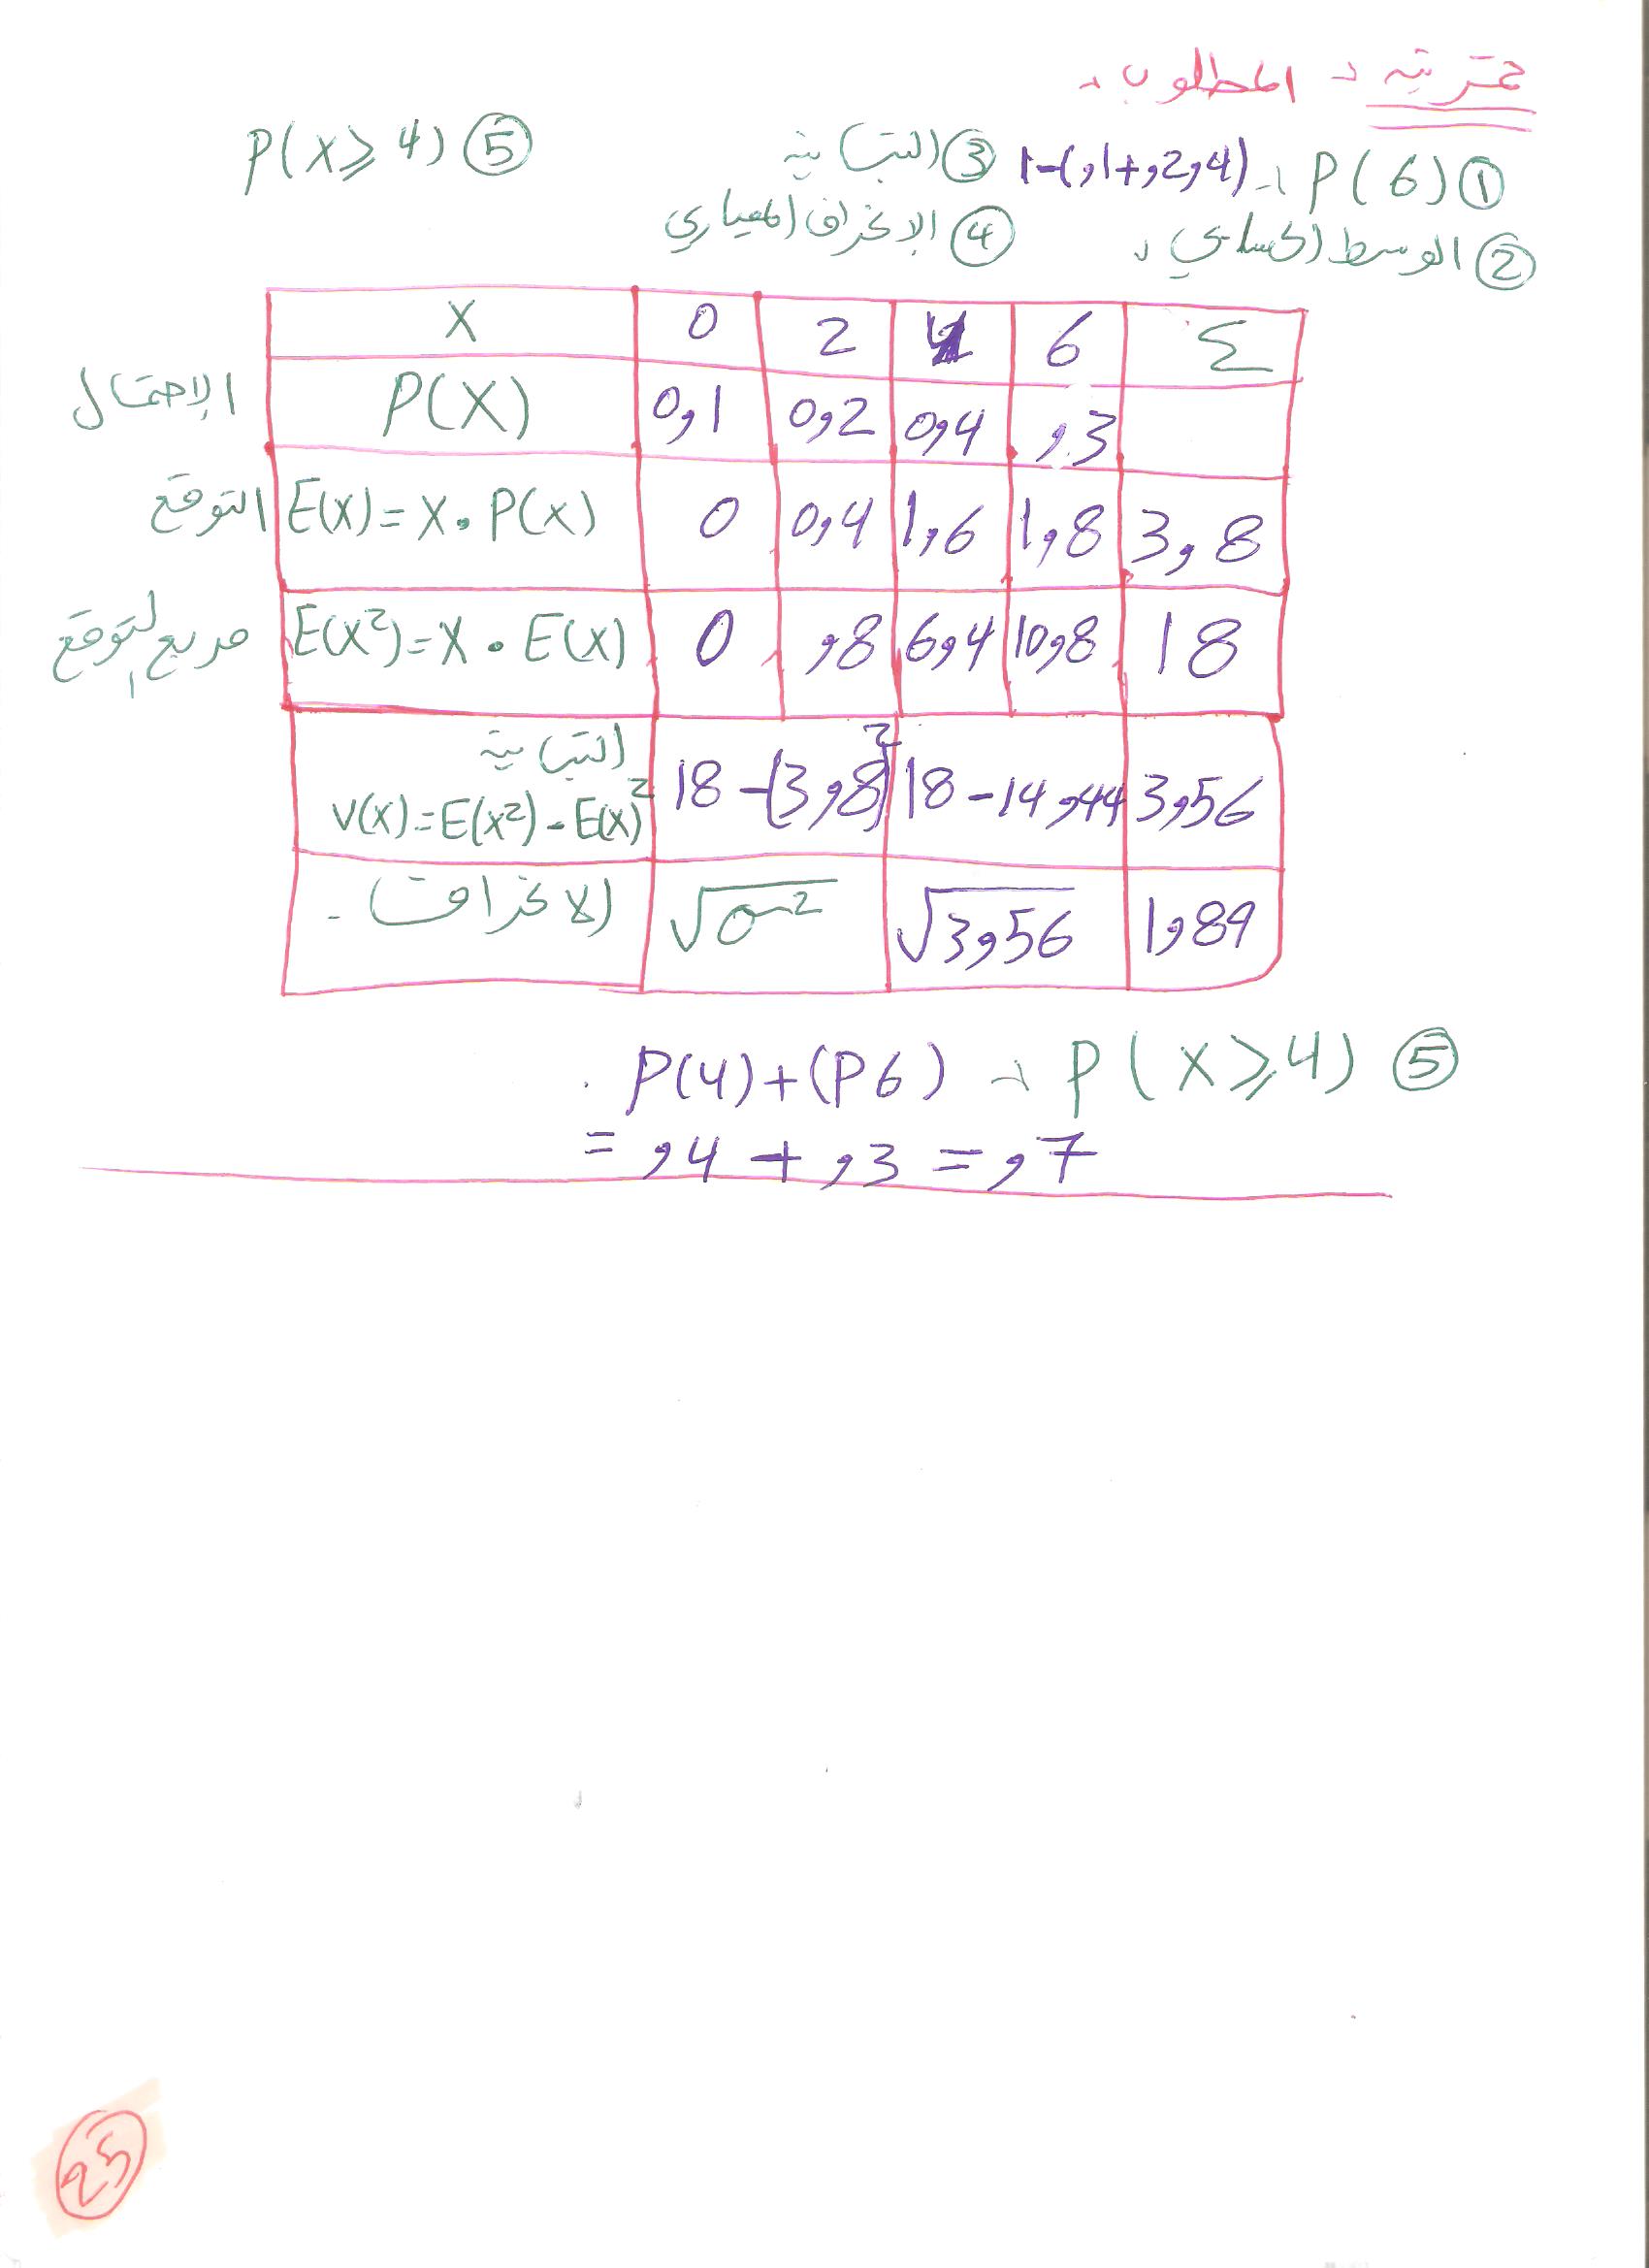 تمرين : المطلوب :
① P(6) ⇒ 1-(,1+,2,4) ③ التباين ⑤ P(X≥4)
② الوسط الحسابي ④ الإنحراف المعياري
X 0 2 4 6 Σ
الإحتمال P(X) 0,1 0,2 0,4 ,3
التوقع E(X)=X.P(X) 0 0,4 1,6 1,8 3,8
مربع التوقع E(X²)=X.E(X) 0 ,8 6,4 10,8 18
التباين
V(X)=E(X²)-E(X)² 18-(3,8)² 18-14,44 3,56
الانحراف √σ² √3,56 1,89
⑤ P(X≥4) ⇒ P(4)+(P6)
= ,4 + ,3 = ,7
25